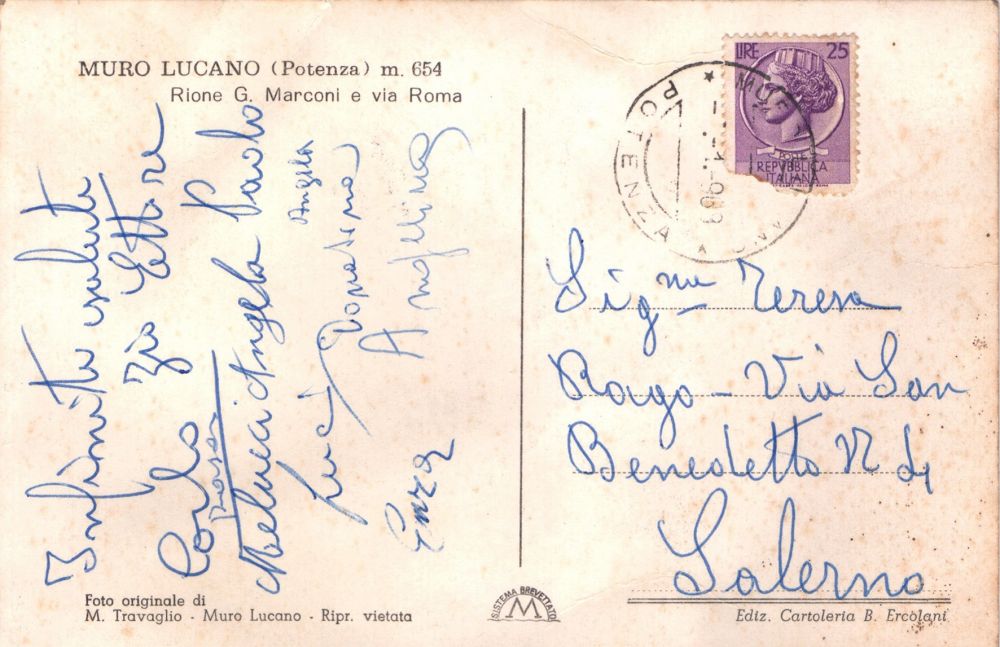 MURO LUCANO (Potenza) m. 654
Rione G. Marconi e via Roma
Infiniti saluti
Zio Ettore
Carlo
Melucci Angela Paolo
Luci
Donatina
Angela
Angelina
Enza
LIRE 25
POSTE
REPVBBLICA
ITALIANA
MURO
POTENZA
Sig.na Teresa
Rago - Via San
Benedetto N 4
Salerno
Foto originale di
M. Travaglio - Muro Lucano - Ripr. vietata
SISTEMA BREVETTATO
M
Ediz. Cartoleria B. Ercolani